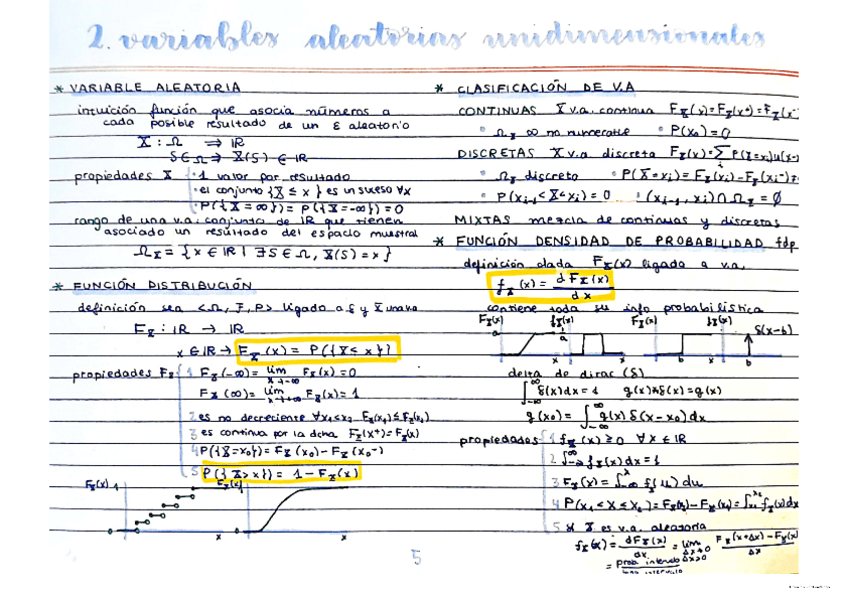 2. variables aleatorias unidimensionales
* VARIABLE ALEATORIA
intuición función que asocia números a
cada posible resultado de un ε aleatorio
X : Ω → IR
S ∈ Ω → X(S) ∈ IR
propiedades X · 1 valor por resultado
· el conjunto {X ≤ x} es un suceso ∀x
· P({X = ∞}) = P({X = -∞}) = 0
rango de una v.a. conjunto de IR que tienen
asociado un resultado del espacio muestral
Ω_X = {x ∈ IR | ∃ S ∈ Ω, X(S) = x}
* FUNCIÓN DISTRIBUCIÓN
definición sea <Ω, F, P> ligado a ε y X una va
F_X : IR → IR
x ∈ IR → F_X(x) = P({X ≤ x})
propiedades F_X 1 F_X(-∞) = lím x→-∞ F_X(x) = 0
F_X(∞) = lím x→+∞ F_X(x) = 1
2 es no decreciente ∀x₁<x₂ F_X(x₁) ≤ F_X(x₂)
3 es continua por la dcha F_X(x⁺) = F_X(x)
4 P({X=x₀}) = F_X(x₀) - F_X(x₀⁻)
5 P({X > x}) = 1 - F_X(x)
F_X(x) 1
x
F_X(x) 1
x
* CLASIFICACIÓN DE V.A
CONTINUAS X v.a. continua F_X(x) = F_X(x⁺) = F_X(x⁻
· Ω_X ∞ no numerable · P(x₀) = 0
DISCRETAS X v.a discreta F_X(x) = Σ_i P(X=x_i)u(x-x
· Ω_X discreto · P(X=x_i) = F_X(x_i) - F_X(x_i⁻)
· P(x_{i-1} < X < x_i) = 0 · (x_{i-1}, x_i) ∩ Ω_X = ∅
MIXTAS mezcla de continuas y discretas
* FUNCIÓN DENSIDAD DE PROBABILIDAD fdp
definición dada F_X(x) ligado a v.a.
f_X(x) = d F_X(x) / dx
contiene toda su info probabilística
F_X(x) f_X(x) F_X(x) f_X(x)
δ(x-b)
a b b b
delta de dirac (δ)
∫_{-∞}^{∞} δ(x)dx = 1 g(x)*δ(x) = g(x)
g(x₀) = ∫_{-∞}^{∞} g(x) δ(x-x₀)dx
propiedades 1 f_X(x) ≥ 0 ∀x ∈ IR
2 ∫_{-∞}^{∞} f_X(x)dx = 1
3 F_X(x) = ∫_{-∞}^{x} f_X(u) du
4 P(x₁ < X ≤ x₂) = F_X(x₂) - F_X(x₁) = ∫_{x₁}^{x₂} f_X(x)dx
5 si X es v.a. aleatoria
f_X(x) = dF_X(x)/dx = lím Δx→0 F_X(x+Δx) - F_X(x) / Δx
= prob intervalo
5